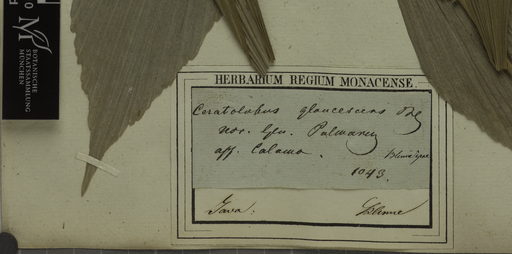 M
BOTANISCHE
STAATSSAMMLUNG
MÜNCHEN
HERBARIUM REGIUM MONACENSE.
Ceratolobus glaucescens
nov. Gen. Palmarum
aff. Calamo.
1043.
Java. Blume